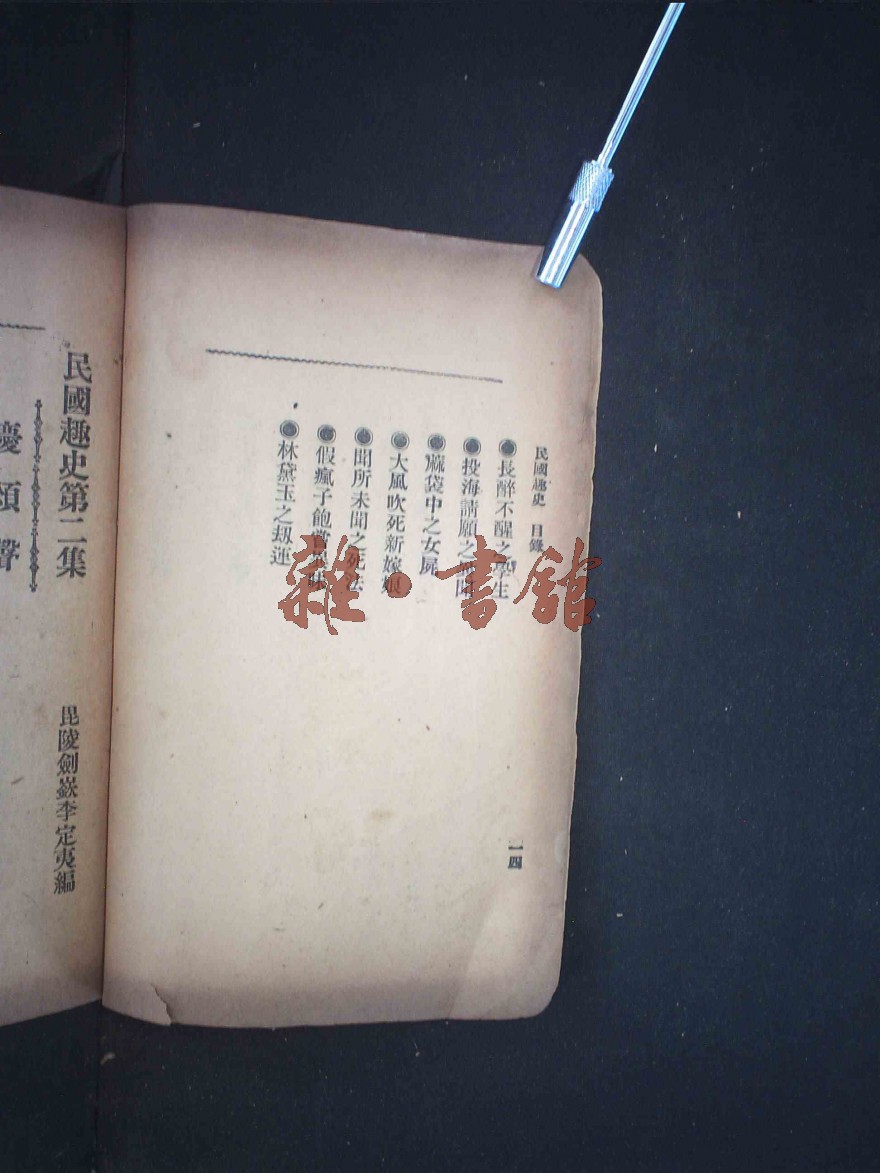 民國趣史 目錄
●長醉不醒之學生
●投海請願之
●麻袋中之女屍
●大風吹死新嫁娘
●聞所未聞之死法
●假瘋子飽嘗異味
●林黛玉之刼運
一四
民國趣史第二集
毘陵劍嶔李定夷編
頌聲
雜·書館